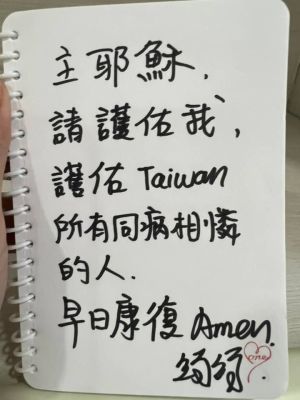 主耶穌,
請護佑我,
護佑Taiwan
所有同病相憐
的人.
早日康復 Amen.